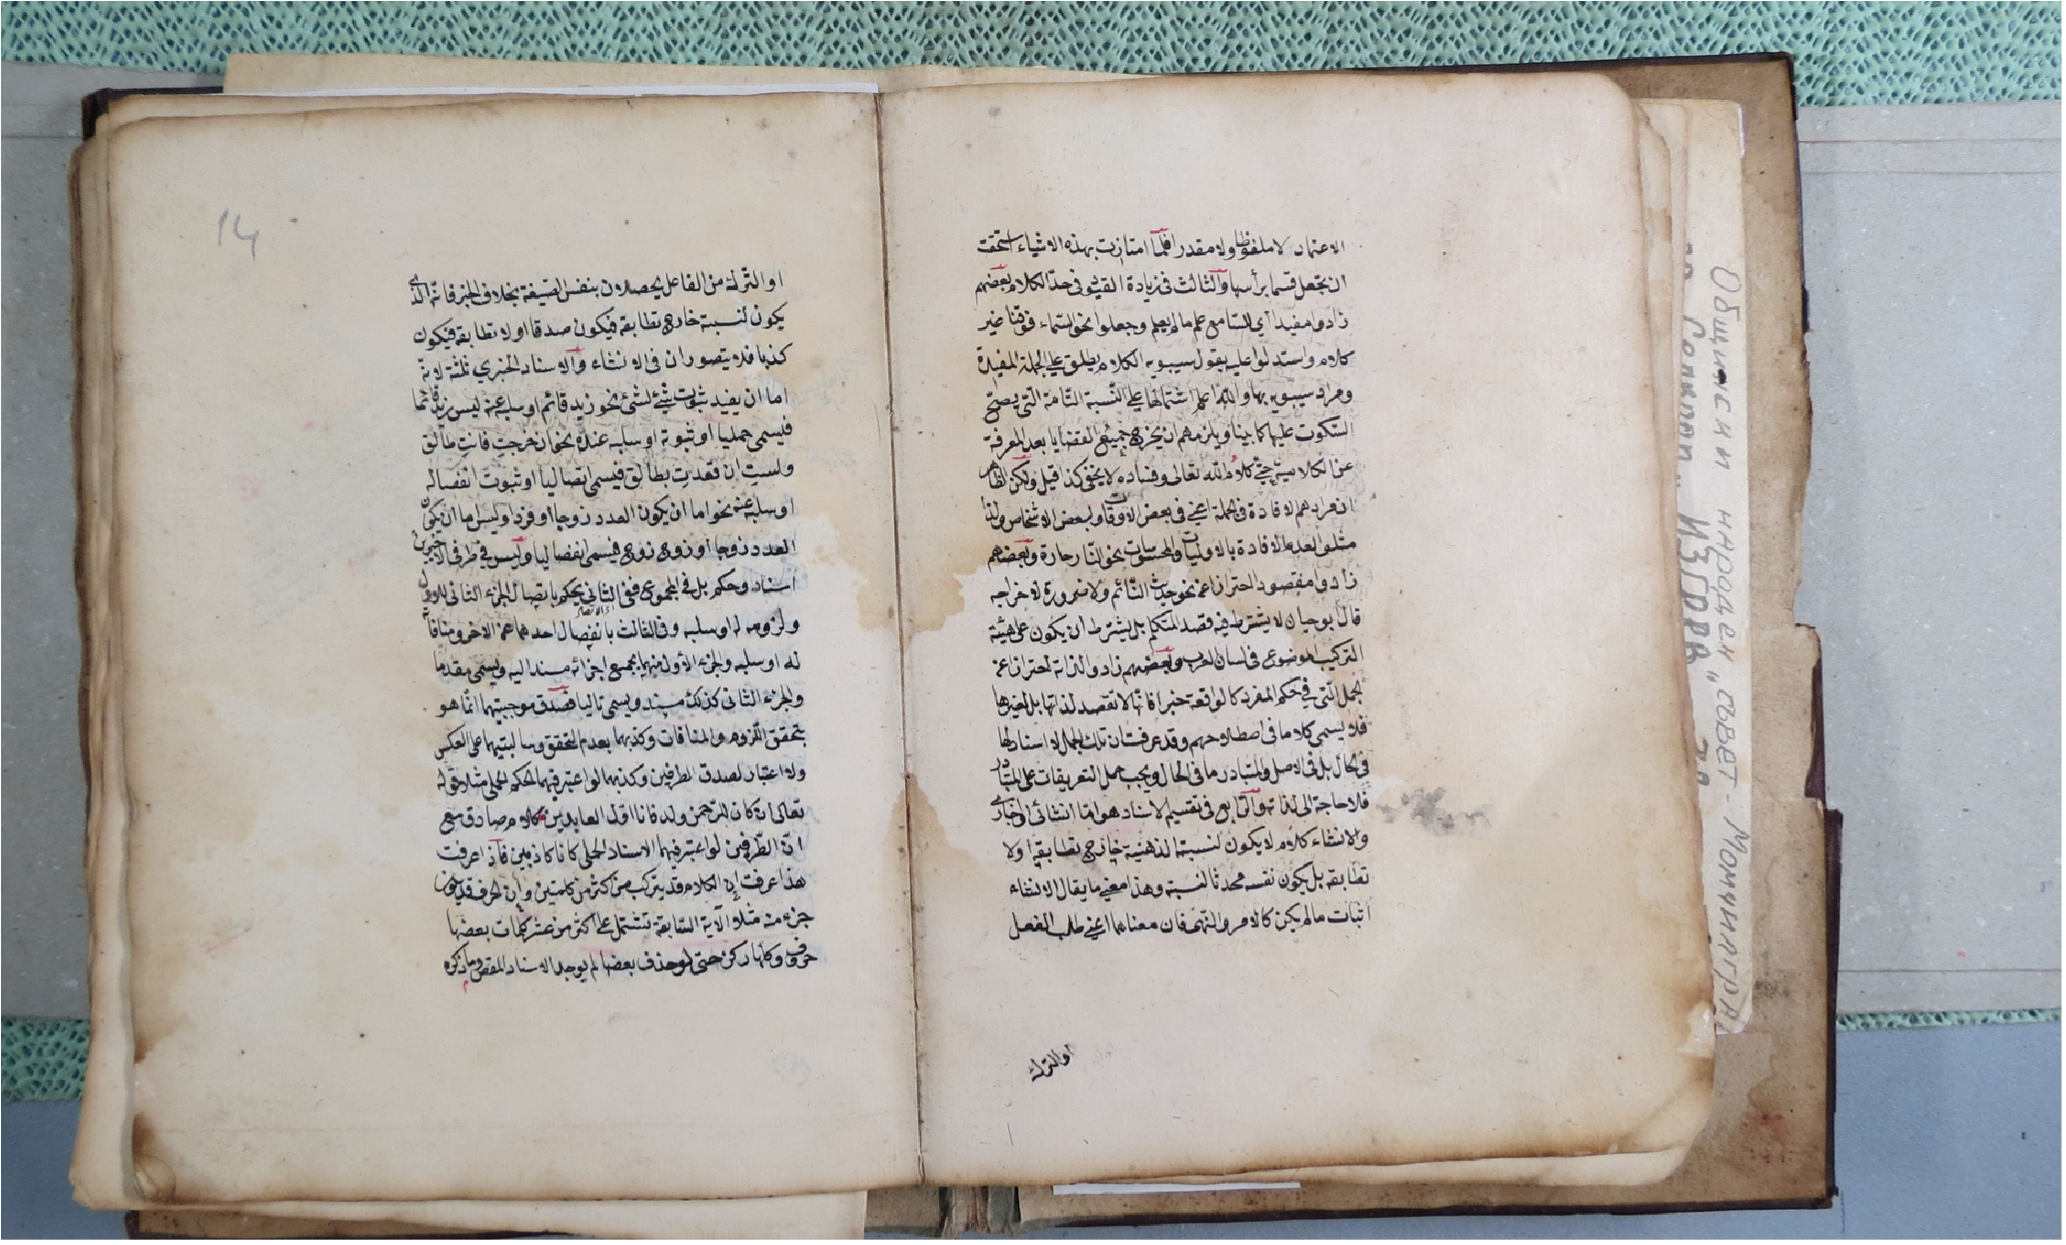 الاعتماد لا ملفوظا ولا مقدرا فلما امتازت بهذه الاشياء استحقت
ان تجعل قسما برأسها والثالث في زيادة القيود في حد الكلام بعضهم
زادوا مفيدا اي للسامع علم ما لم يعلم وجعلوا نحو السماء فوقنا غير
كلام واستدلوا عليه بقول سيبويه الكلام يطلق على الجملة المفيدة
ومراد سيبويه بها والله اعلم اشتمالها على النسبة التامة التي يصح
السكوت عليها كما بينا ويلزمهم ان يخرج جميع القضايا بعد المعرفة
عن الكلامية حتى كلام الله تعالى وفساده لا يخفى كذا قيل ولكن الظاهر
ان مرادهم الافادة في الجملة اعني في بعض الاوقات او لبعض الاشخاص ولذا
مثلوا لعدم الافادة بالاوليات والمحسوسات نحو النار حارة وبعضهم
زادوا مقصودا احترازا عن نحو حديث النائم ولا ضرورة لاخراجه
قال ابو حيان لا يشترط فيه قصد المتكلم بل يشترط ان يكون على هيئة
التركيب الموضوع في لسان العرب وبعضهم زادوا لذاته احترازا عن
الجمل التي في حكم المفرد كالواقعة خبرا فانها لا تقصد لذاتها بل لغيرها
فلا يسمى كلاما في اصطلاحهم وقد عرفت ان تلك الجمل لا اسناد لها
في الحال بل في الاصل والمتبادر ما في الحال ويجب حمل التعريفات على المتبادر
فلا حاجة الى لذاته والرابع في تقسيم الاسناد هو اما انشائي او اخباري
والانشاء كلام لا يكون لنسبته الذهنية خارج تطابقه او لا
تطابقه بل يكون نفسه محدثا لنسبته وهذا معنى ما يقال الانشاء
اثبات ما لم يكن كالامر والنهي فان معناهما اعني طلب الفعل
او الترك
14
او الترك من الفاعل يحصلان بنفس الصيغة بخلاف الخبر فانه الذي
يكون لنسبته خارج تطابقه فيكون صدقا او لا تطابقه فيكون
كذبا فلا يتصوران في الانشاء والاسناد الخبري ثلثة لانه
اما ان يفيد ثبوت شئ لشئ نحو زيد قائم او سلبه عنه ليس زيد قائما
فيسمى حمليا او ثبوته او سلبه عنده نحو ان خرجت فانت طالق
وليست ان قعدت بطالق فيسمى اتصاليا او ثبوت انفصاله
او سلبه عنه نحو اما ان يكون العدد زوجا او فردا وليس اما ان يكون
العدد زوجا او زوج زوج فيسمى انفصاليا وليس في طرفي الاخيرين
اسناد وحكم بل في المجموع ففي الثاني يحكم باتصال الجزء الثاني للاول
ولزومه له او سلبه وفي الثالث بانفصال احدهما عن الاخر ومنافاته
له او سلبه والجزء الاول منهما بجميع اجزائه مسند اليه ويسمى مقدما
والجزء الثاني كذلك مسند ويسمى تاليا فصدق موجبتيهما انما هو
بتحقق اللزوم والمنافات وكذبهما بعدم التحقق وسالبتيهما على العكس
ولا اعتبار لصدق الطرفين وكذبهما لو اعتبر فيهما الحكم الحملي مثلا قوله
تعالى ان كان للرحمن ولد فانا اول العابدين كلام صادق مع
ان الطرفين لو اعتبر فيهما الاسناد الحملي كانا كاذبين فاذا عرفت
هذا عرفت ان الكلام قد يتركب من اكثر من كلمتين وان الحرف قد يكون
جزء منه مثلا الآية السابقة تشتمل على اكثر من عشر كلمات بعضها
حروف وكلها ركن حتى لو حذف بعضها لم يوجد الاسناد المقص وما ذكره
Общински народен съвет - Момчилград